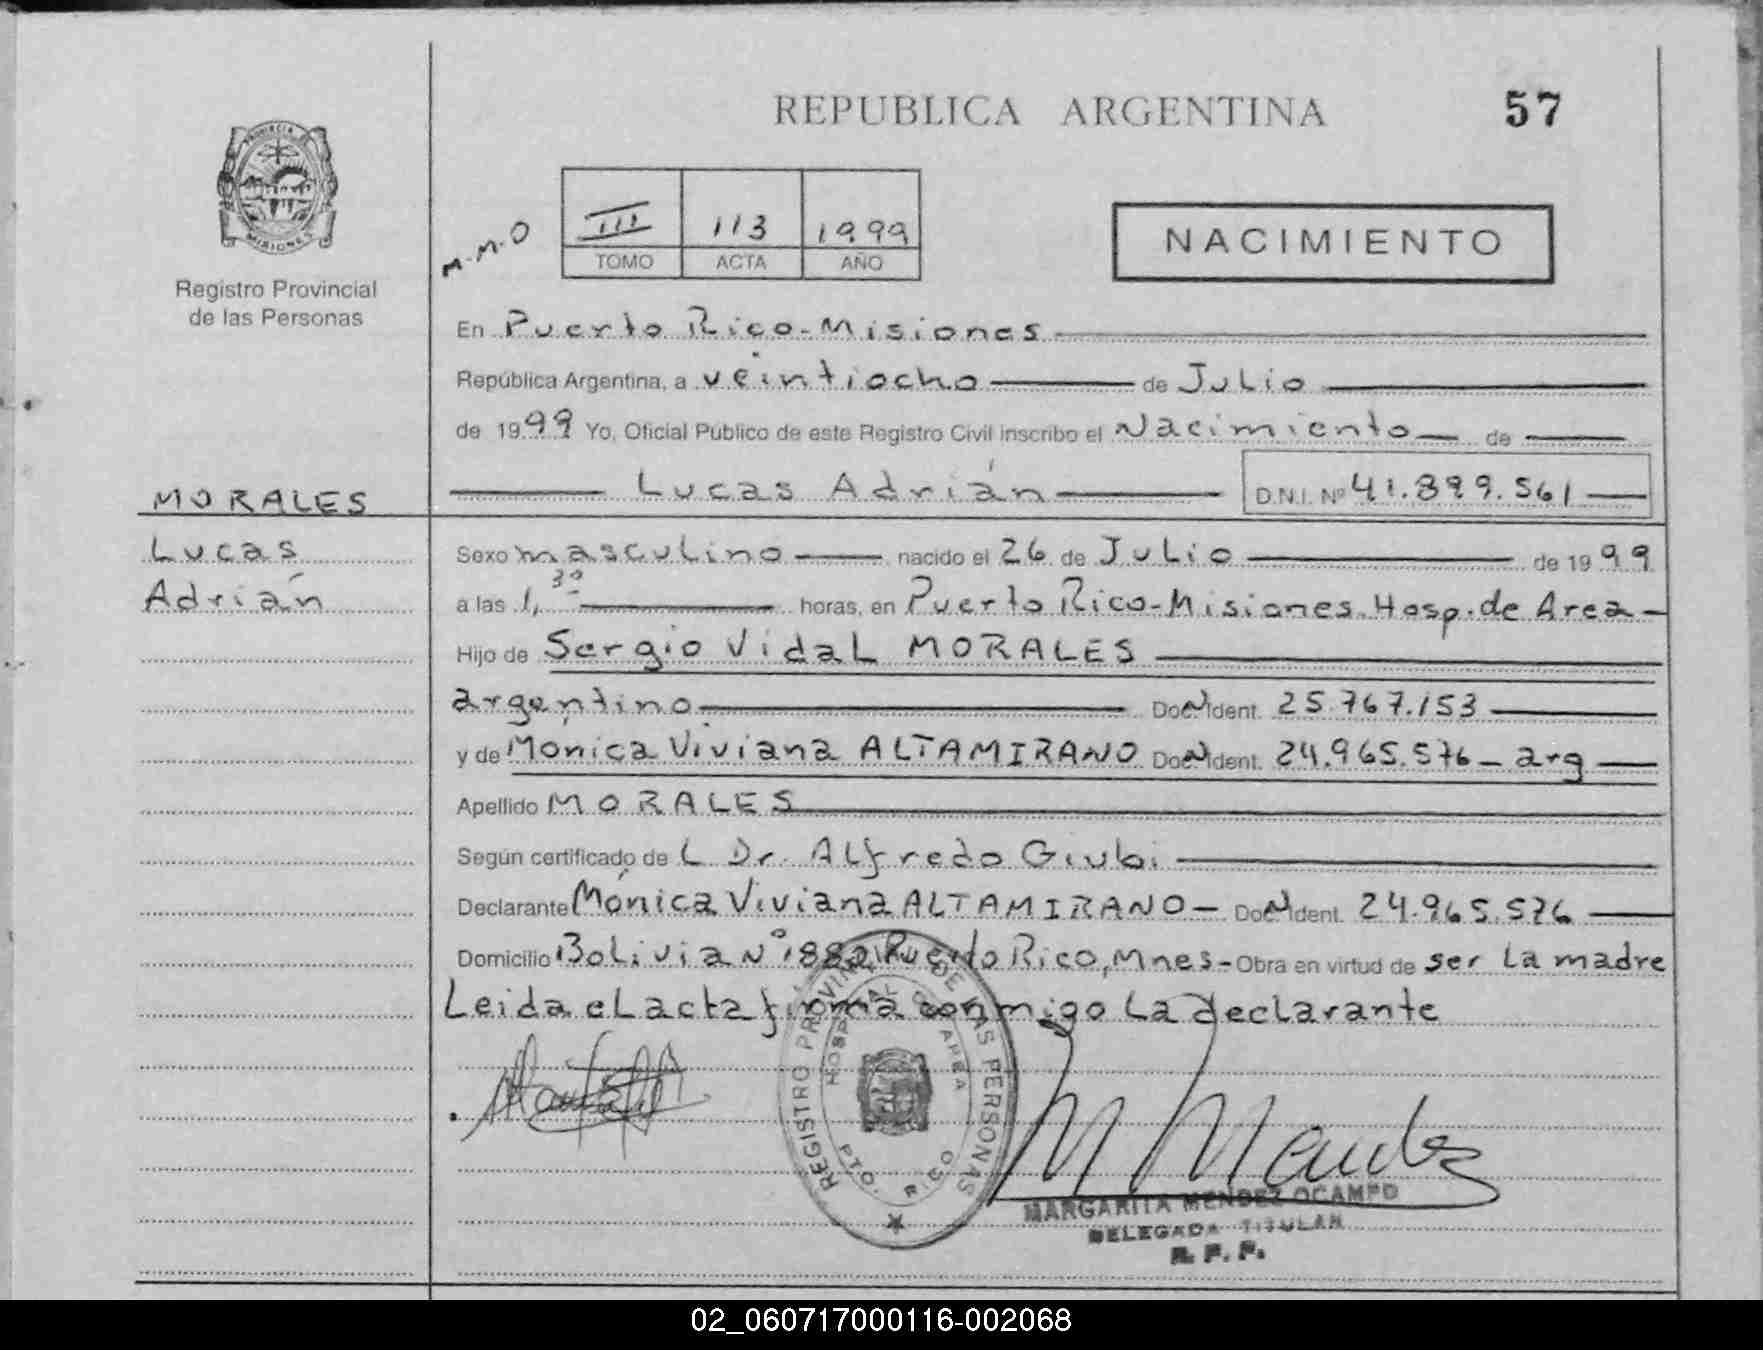 REPUBLICA ARGENTINA
57
PROVINCIA DE
MISIONES
Registro Provincial
de las Personas
M.M.O
III 113 1999
TOMO ACTA AÑO
NACIMIENTO
En Puerto Rico-Misiones
República Argentina, a veintiocho de Julio
de 1999 Yo, Oficial Público de este Registro Civil inscribo el Nacimiento de
Lucas Adrián D.N.I. Nº 41.899.561
MORALES
Lucas
Adrián
Sexo masculino nacido el 26 de Julio de 1999
a las 1,30 horas, en Puerto Rico-Misiones.Hosp.de Area-
Hijo de Sergio Vidal MORALES
argentino Doc. Ident. 25.767.153
y de Mónica Viviana ALTAMIRANO Doc. Ident. 24.965.576 - arg
Apellido MORALES
Según certificado de L Dr. Alfredo
Declarante Mónica Viviana ALTAMIRANO- Doc. Ident. 24.965.576
Domicilio Bolivia Nº 1882 Puerto Rico, Mnes- Obra en virtud de ser La madre
Leida eL acta firma conmigo La declarante
REGISTRO PROVINCIAL DE LAS PERSONAS
HOSPITAL DE AREA
PTO. RICO
M Mendez
MARGARITA MENDEZ OCAMPO
DELEGADA TITULAR
R. P. P.
02_060717000116-002068